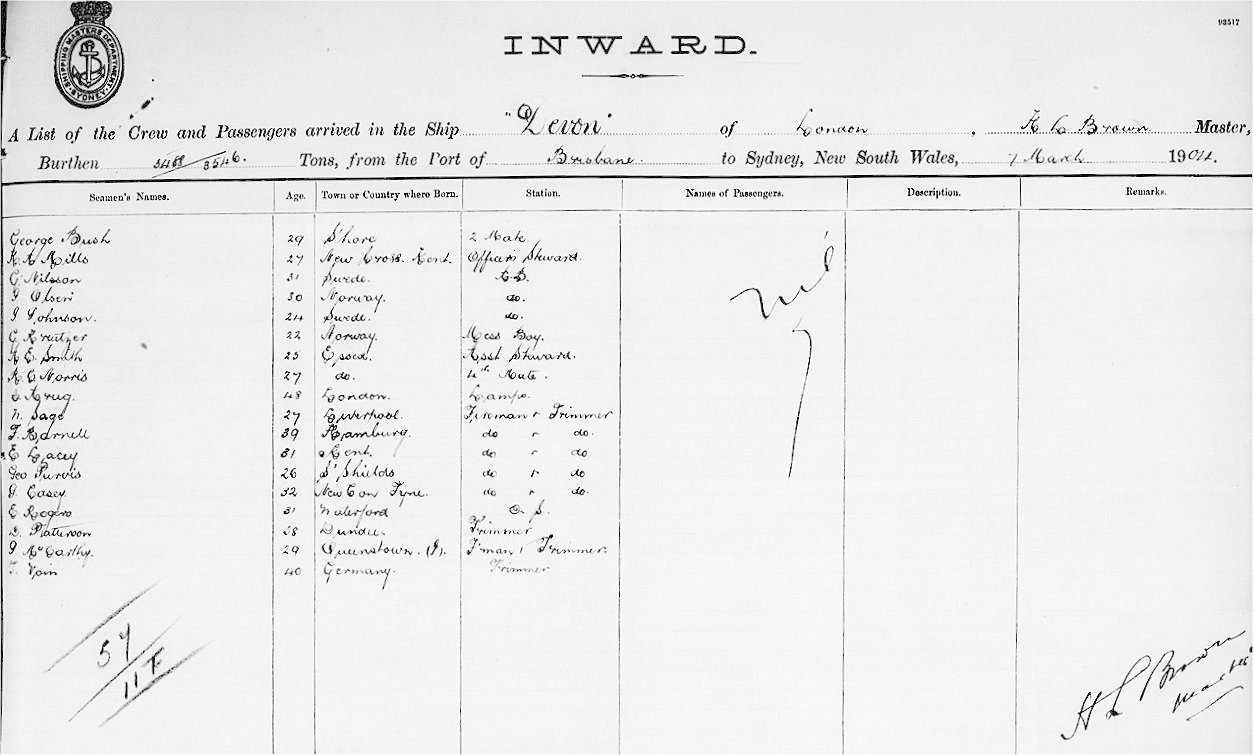 93517
SHIPPING MASTERS DEPARTMENT SYDNEY
INWARD.
A List of the Crew and Passengers arrived in the Ship "Devon" of London, H L Brown Master,
Burthen 5468/3546. Tons, from the Port of Brisbane. to Sydney, New South Wales, 7 March 1904.
Seamen's Names. Age. Town or Country where Born. Station. Names of Passengers. Description. Remarks.
George Bush 29 S'hore 2 Mate
Mills 27 New Cross. Kent. Officers Steward. nil
G Nilsson 31 Swede. A.B.
Olsen 30 Norway. do.
Johnson. 24 Swede. do.
G Kreutzer 22 Norway. Mess Boy.
Smith 25 Essex. Asst Steward.
Norris 27 do. 4th Mate.
Krug. 48 London. Lamps.
Sage 27 Liverpool. Fireman & Trimmer
Barnell 39 Hamburg. do " do.
E Lacey 31 Kent. do " do
Geo Purvis 26 S' Shields do " do
Casey. 32 New C on Tyne. do " do.
E Rogers 31 Waterford O.S.
D. Patterson 38 Dundee. Trimmer
McCarthy. 29 Queenstown. (I). F'man & Trimmer.
40 Germany. Trimmer
57
11 F
H L Brown
Master